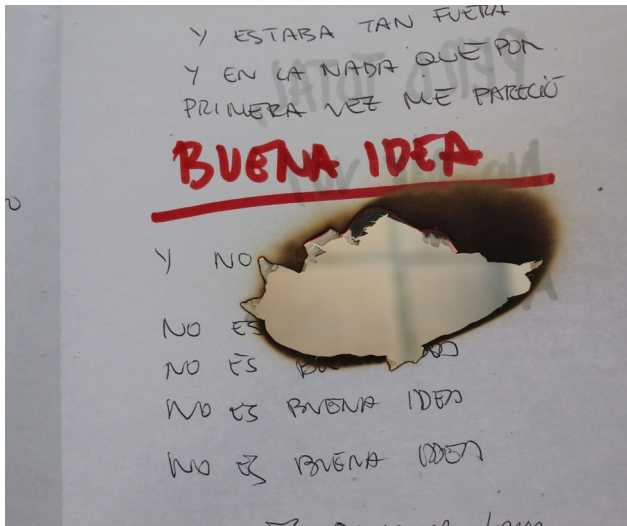 Y ESTABA TAN FUERA
Y EN LA NADA QUE POR
PRIMERA VEZ ME PARECIÓ
BUENA IDEA
Y NO
NO ES
NO ES
NO ES BUENA IDEA
NO ES BUENA IDEA